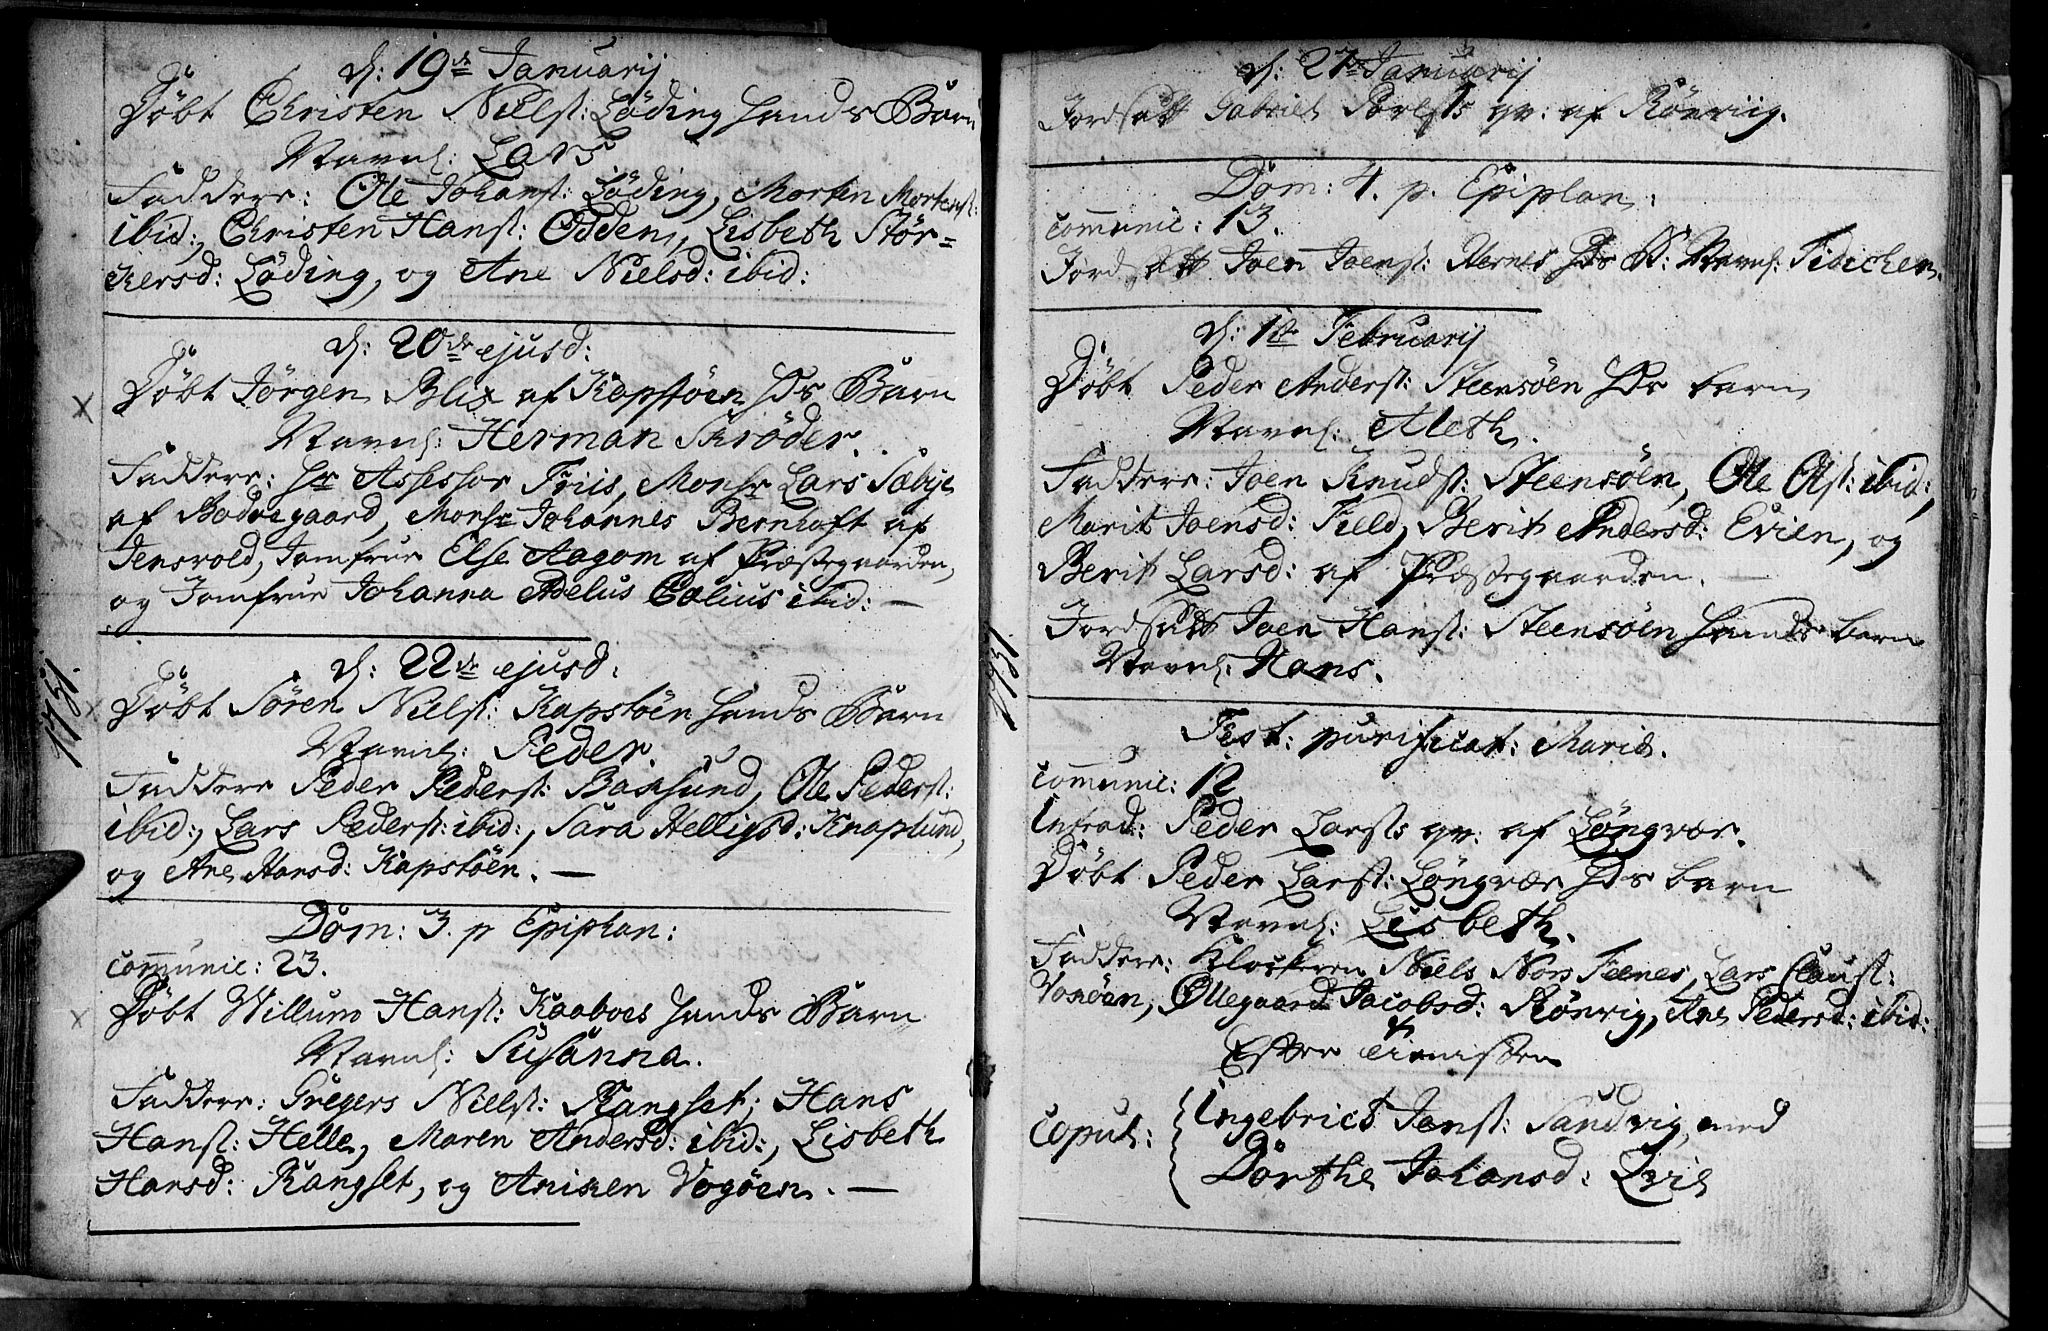 d: 19de Januarij
Döbt Christen Nielst: Löding hands Barn
Navnl: Lars
Faddere: Ole Johanst: Löding, Morten Mortenst:
ibid:, Christen Hanst: Odden, Lisbeth Stör=
kersd: Löding, og Ane Nielsd: ibid:
d: 20de ejusd:
Döbt Jörgen Blix af Kapstöen Hds Barn
Navnl: Herman Schröder.
Faddere: Hr Assessor Friis, Monsr Lars Sæbye
af Bodøegaard, Monsr Johannes Bernhoft af
Jensvold, Jomfrue Else Aagom af Præstegaarden,
og Jomfrue Johanna Adelus Coelius ibid: —
1751.
d: 22de ejusd:
Döbt Sören Nielst: Kapstöen hands Barn
Navnl: Peder.
Faddere Peder Pederst: Baxsund, Ole Pederst:
ibid:, Lars Pederst: ibid:, Sara Helligsd: Knaplund,
og Ane Hansd: Kapstöen. —
Dom: 3. p Epiphan:
communic: 23.
Döbt Willum Hanst: Kaaboes hands Barn
Navnl: Susanna.
Faddere: Gregers Nielst: Rangset, Hans
Hanst: Helle, Maren Andersd: ibid:, Lisbeth
Hansd: Rangset, og Aniken Vogöen. —
d: 27de Januarij
Jordsatt Gabriel qv: af Rönvig.
Dom: 4. p. Epiphan:
communic: 13.
Jordsatt Joen Joenst: Hernes Hds B: Navnl: Tidichen.
d: 1ste Februarij
Döbt Peder Anderst: Steensöen Hds barn
Navnl: Aleth.
Faddere: Joen Knudst: Steensöen, Ole Olst: ibid:,
Marit Joensd: Field, Berit Andersd: Evien, og
Berit Larsd: af Præstegaarden. —
Jordsatt Joen Hanst: Steensöen hands barn
Navnl: Hans.
1751.
Fest: purificat: Mariæ.
communic: 12
Introd: Peder Larsts qv: af Löngvær.
Döbt Peder Larst: Löngvær Hds barn
Navnl: Lisbeth.
Faddere: Klockeren Niels Nors Feenes, Lars Claust:
Voxöen, Ollegaard Jacobsd: Rönvig, Ane Pedersd: ibid:
Efter Tienisten
Copul: Ingebrict Jenst: Sandvig, med
Dörthe Johansd: Evie